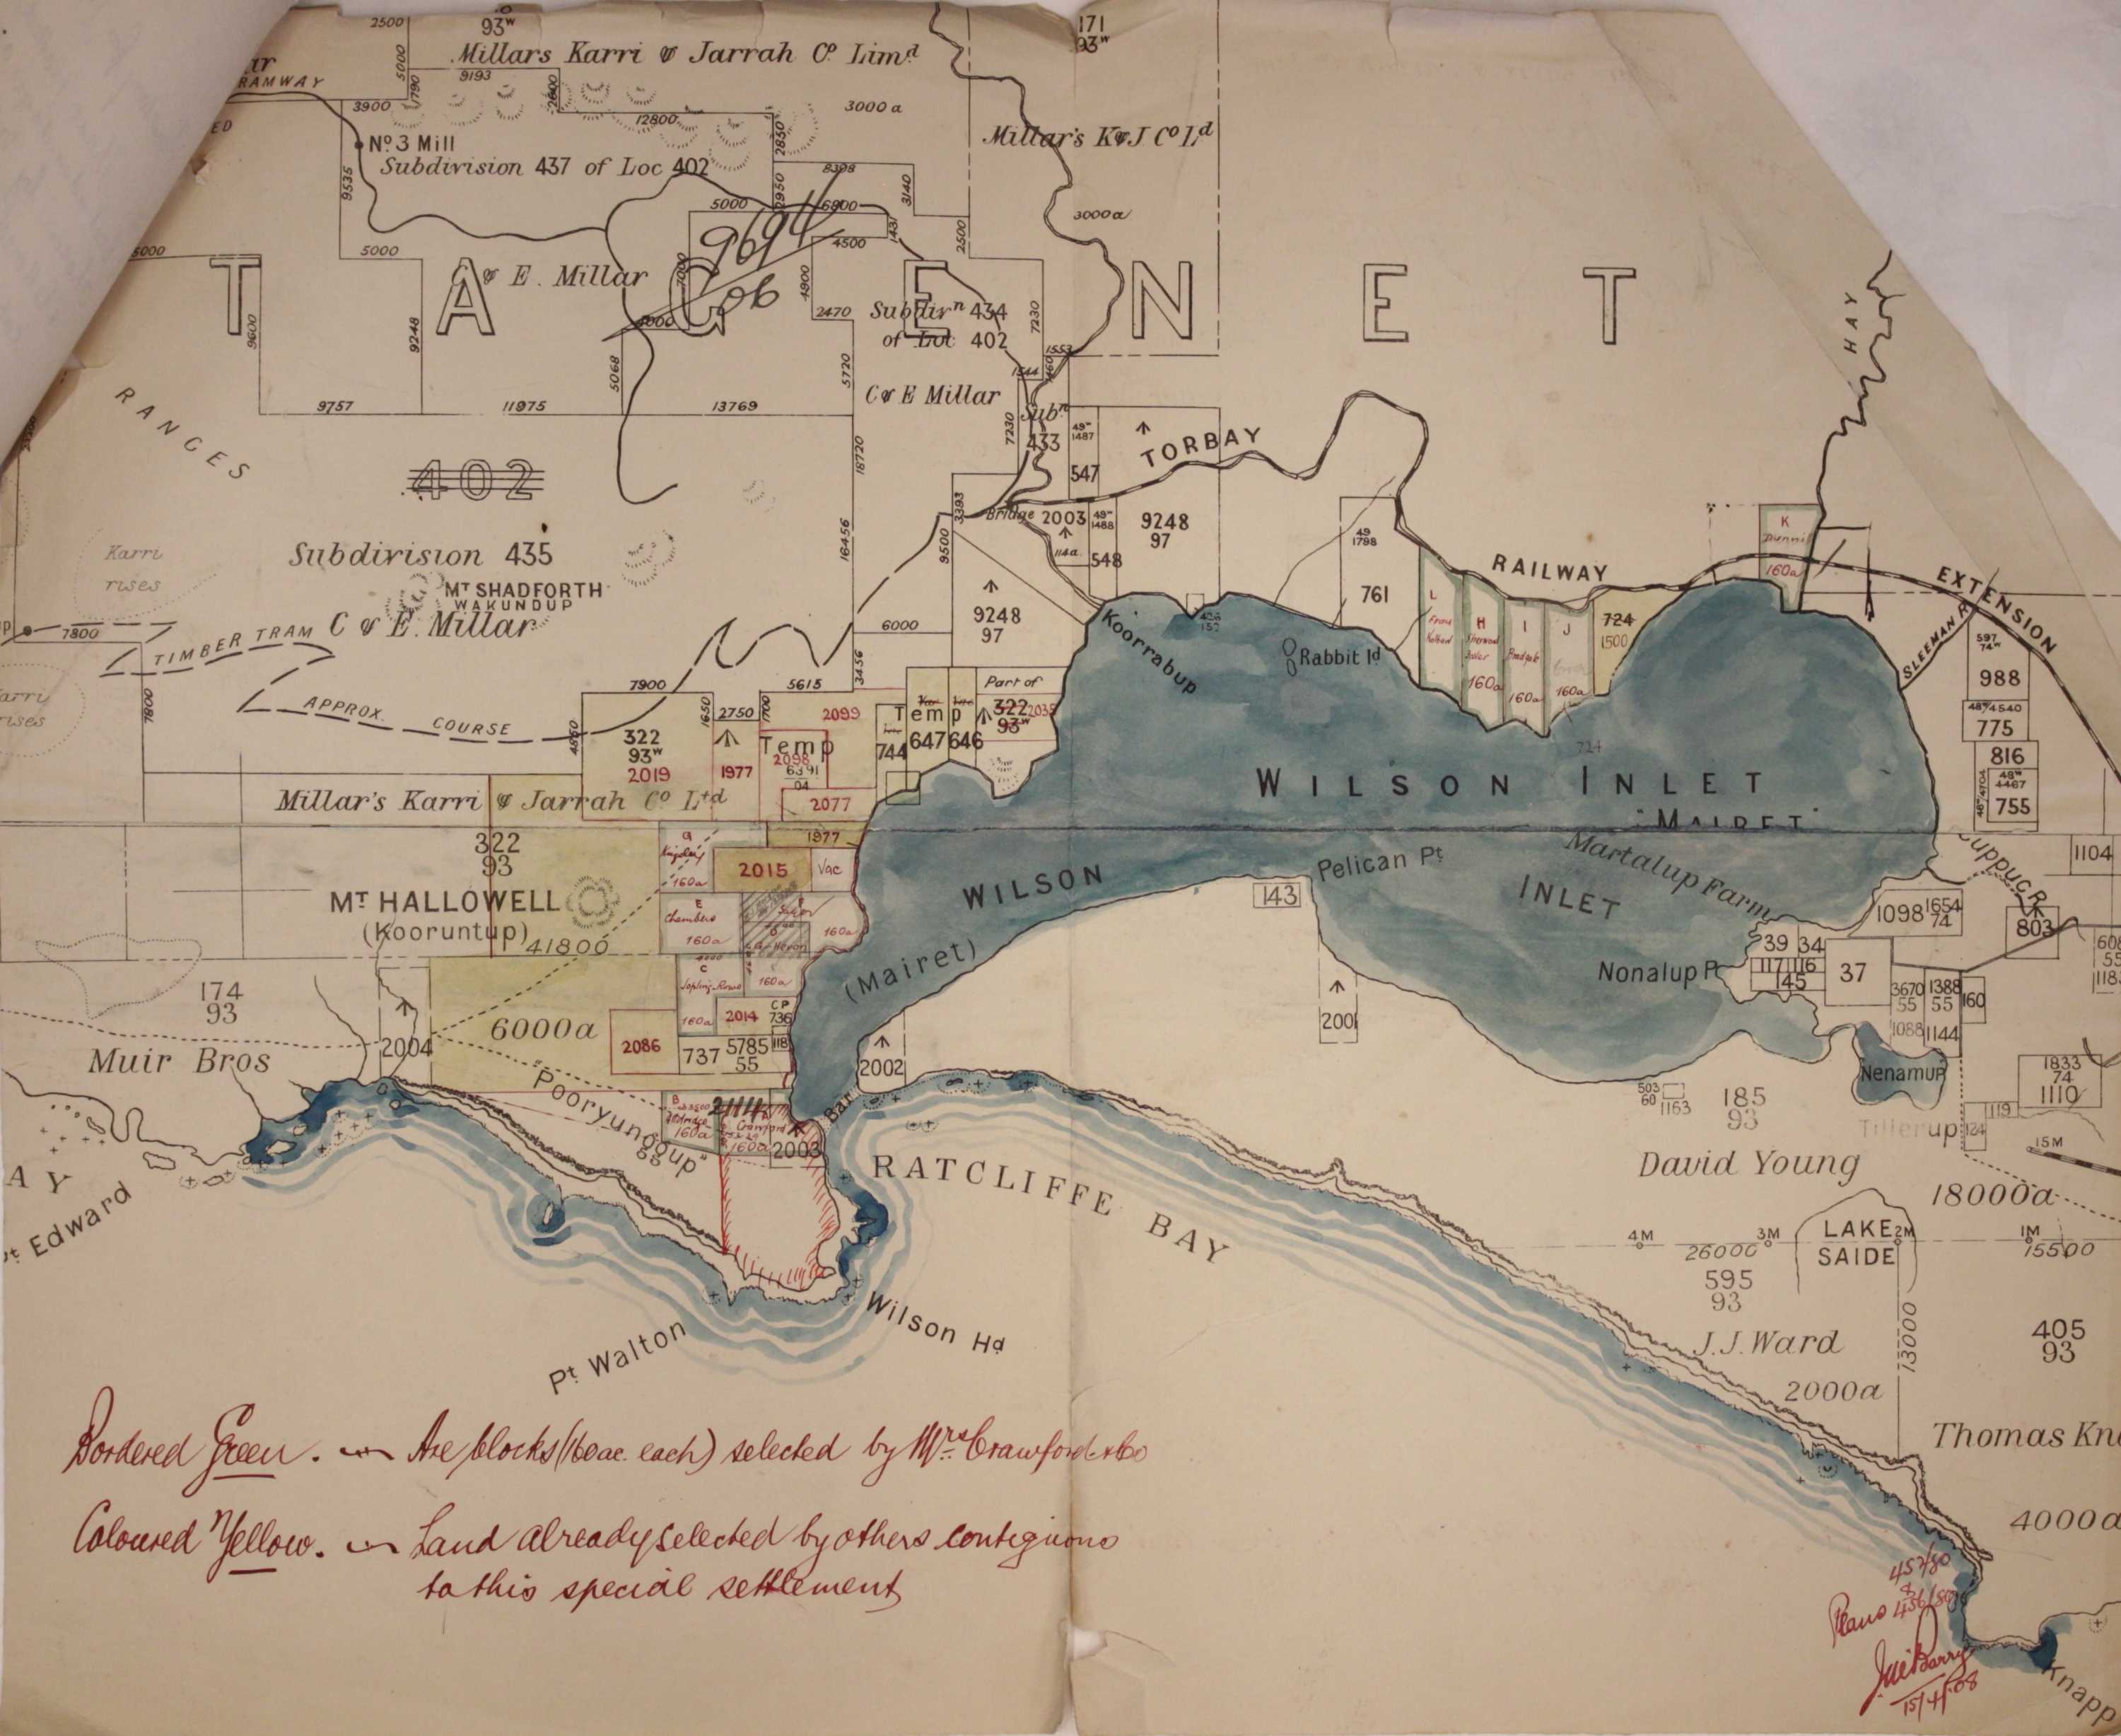 2500
93ᵂ
171
93ᵂ
Millars Karri & Jarrah Cº. Limᵈ
RAMWAY
5000
9193
1790
2600
3900
12800
3000 a
Millar's K & J Cº Lᵈ
Nº 3 Mill
Subdivision 437 of Loc 402
2850
9535
8398
2950
3140
5000
6800
3000a
9694
06
4500
1431
2500
5000
5000
C & E. Millar
7000
4900
T A G E N E T
HAY
9600
9248
4000
2470
Subdivⁿ 434
of Loc 402
7230
1553
5068
5720
1544
C & E Millar
RANGES
9757
11975
13769
7230
Subⁿ
433
49ᵂ
1487
547
TORBAY
402
18720
3393
Bridge
2003
49ᵂ
1488
548
114a
9248
97
49
1798
761
K
160a
Karri
rises
Subdivision 435
MT SHADFORTH
WAKUNDUP
C & E. Millar
16456
9500
9248
97
RAILWAY
EXTENSION
7800
TIMBER TRAM
6000
Koorrabup
Rabbit Id
L
H
Sherwood
160a
I
160a
J
160a
724
1500
SLEEMAN R
597
74ᵂ
988
7800
APPROX. COURSE
7900
5615
3456
Part of
322
93ᵂ
4550
1650
2750
1700
2099
Temp
744
647
646
322
93ᵂ
2019
1977
Temp
2098
6391
04
2077
724
48ᵂ/4540
775
816
48ᵂ
4467
755
Millar's Karri & Jarrah Cº Lᵗᵈ
WILSON INLET
"MAIRET"
322
93
1977
G
160a
2015
Vac
WILSON
INLET
(Mairet)
Pelican Pt
Martalup Farm
Cuppup R
1104
MT HALLOWELL
(Kooruntup)
41800
E
Chambers
160a
160a
143
1098
1654
74
803
39
34
117
116
145
37
Nonalup Pt
174
93
Muir Bros
2004
6000a
C
160a
160a
2014
CP
736
2086
737
5785
55
118
2002
200
3670
55
1388
55
160
1088
1144
Nenamup
1833
74
1110
503
60
1163
185
93
119
124
Tillerup
15M
"Pooryunggup"
B
160a
2114
Crawford
160a
2003
Bar
RATCLIFFE BAY
David Young
18000a
AY
Pt Edward
4M
3M
2M
1M
26000
15500
LAKE
SAIDE
595
93
13000
405
93
Pt Walton
Wilson Hd
J.J. Ward
2000a
Bordered Green. — Are blocks (160 ac. each) selected by Mrs. Crawford & Co
Coloured Yellow. — Land already selected by others contiguous
to this special settlement
Thomas Kn
4000a
457/80
Plans 456/80
15/4/08
Knapp